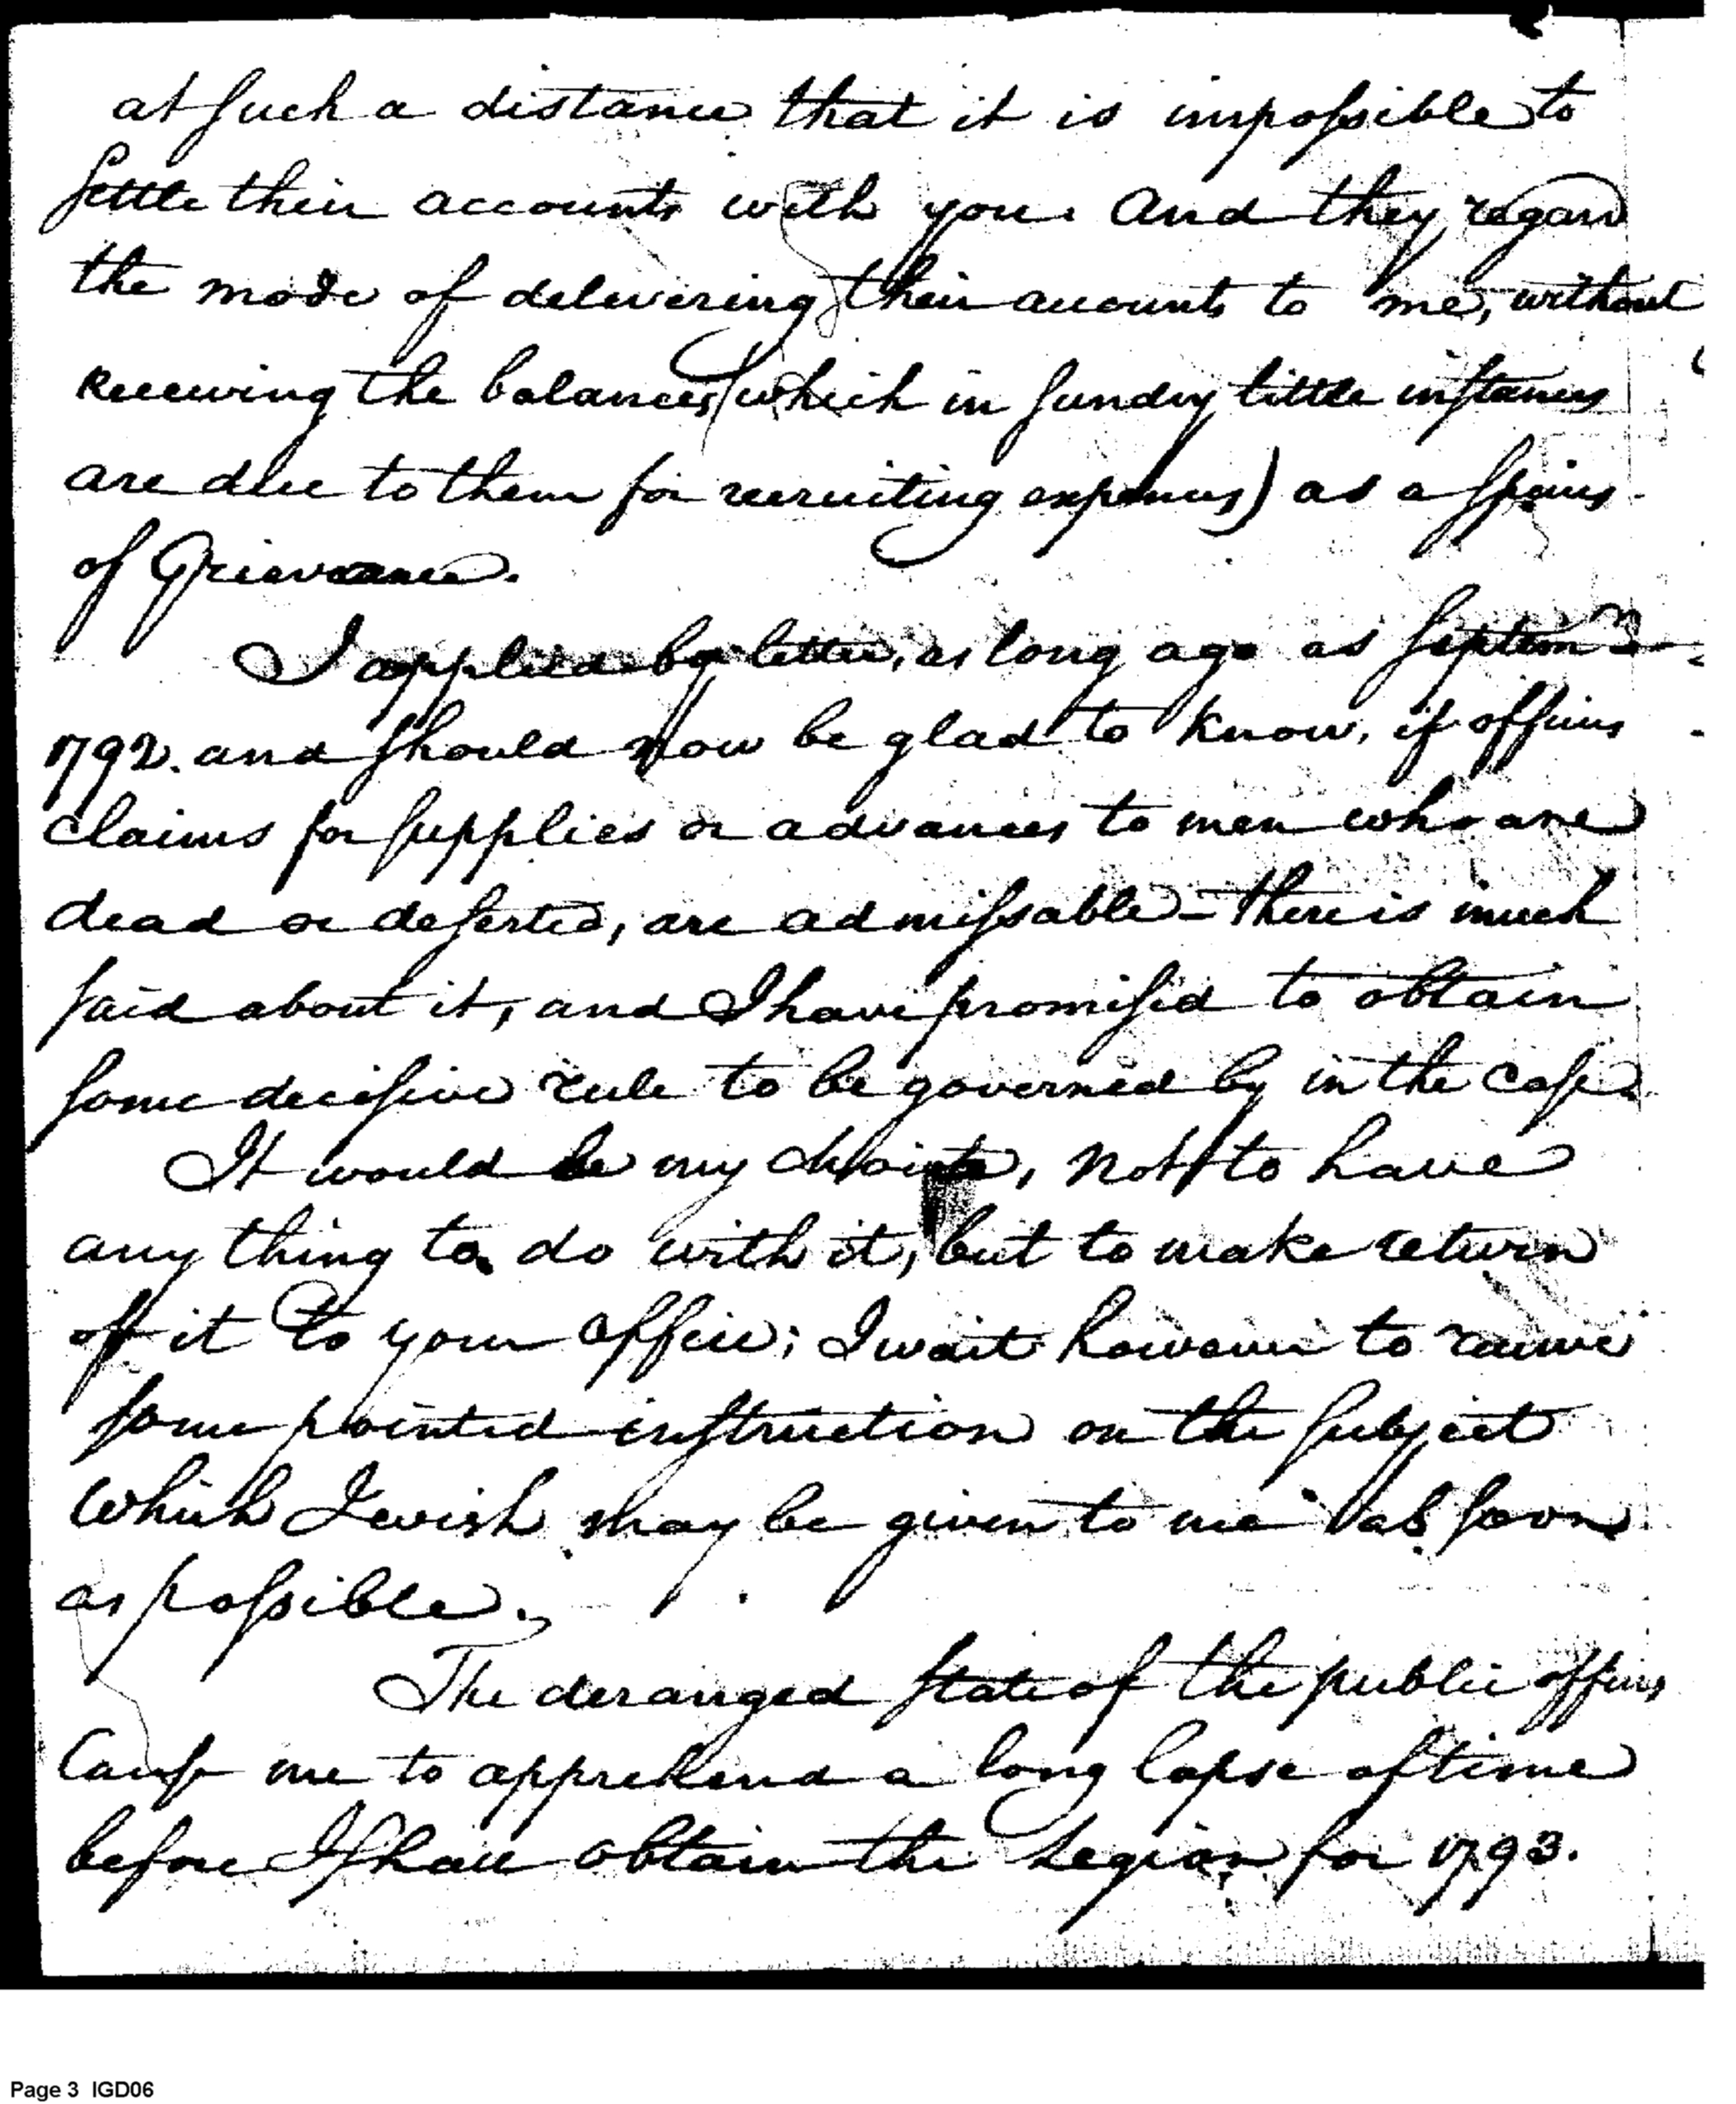 at such a distance that it is impossible to
settle their accounts with you. And they regard
the mode of delivering their accounts to me, without
receiving the balances (which in sundry little instances
are due to them for recruiting expences) as a species
of Grievance.
I applied by letter, as long ago as Septem
1792. and should now be glad to know, if officers
claims for supplies or advances to men who are
dead or deserted, are admissable - there is much
said about it, and I have promised to obtain
some decisive rule to be governed by in the case.
It would be my choice, not to have
any thing to do with it, but to make return
of it to your office; I wait however to receive
some pointed instruction on the subject
which I wish may be given to me as soon
as possible.
The deranged state of the public offices
Cause me to apprehend a long lapse of time
before I shall obtain the Legion for 1793.
Page 3 IGD06